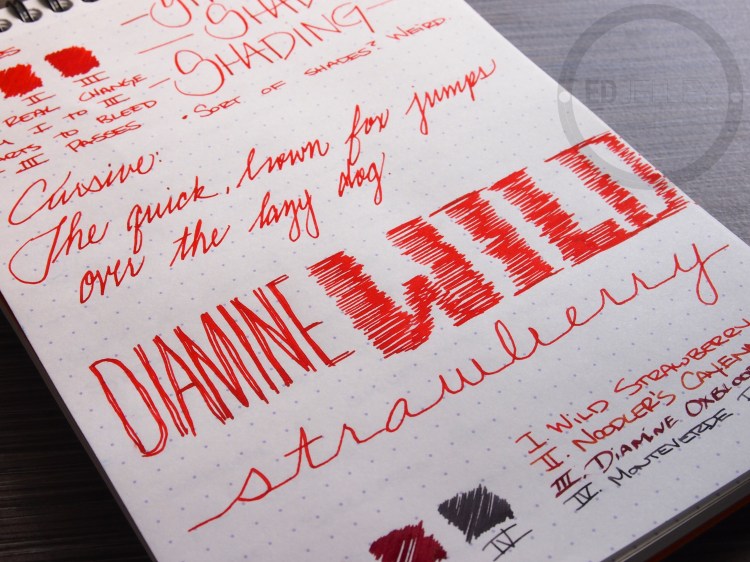 SHADING
II III
REAL CHANGE
I TO III
TO BLEED
III PASSES
• SORT OF SHADES? WEIRD.
Cursive:
The quick, brown fox jumps
over the lazy dog
DIAMINE WILD
strawberry
I WILD STRAWBERRY
II. NOODLER'S
III. DIAMINE OXBLOOD
IV. MONTEVERDE
IV
ED